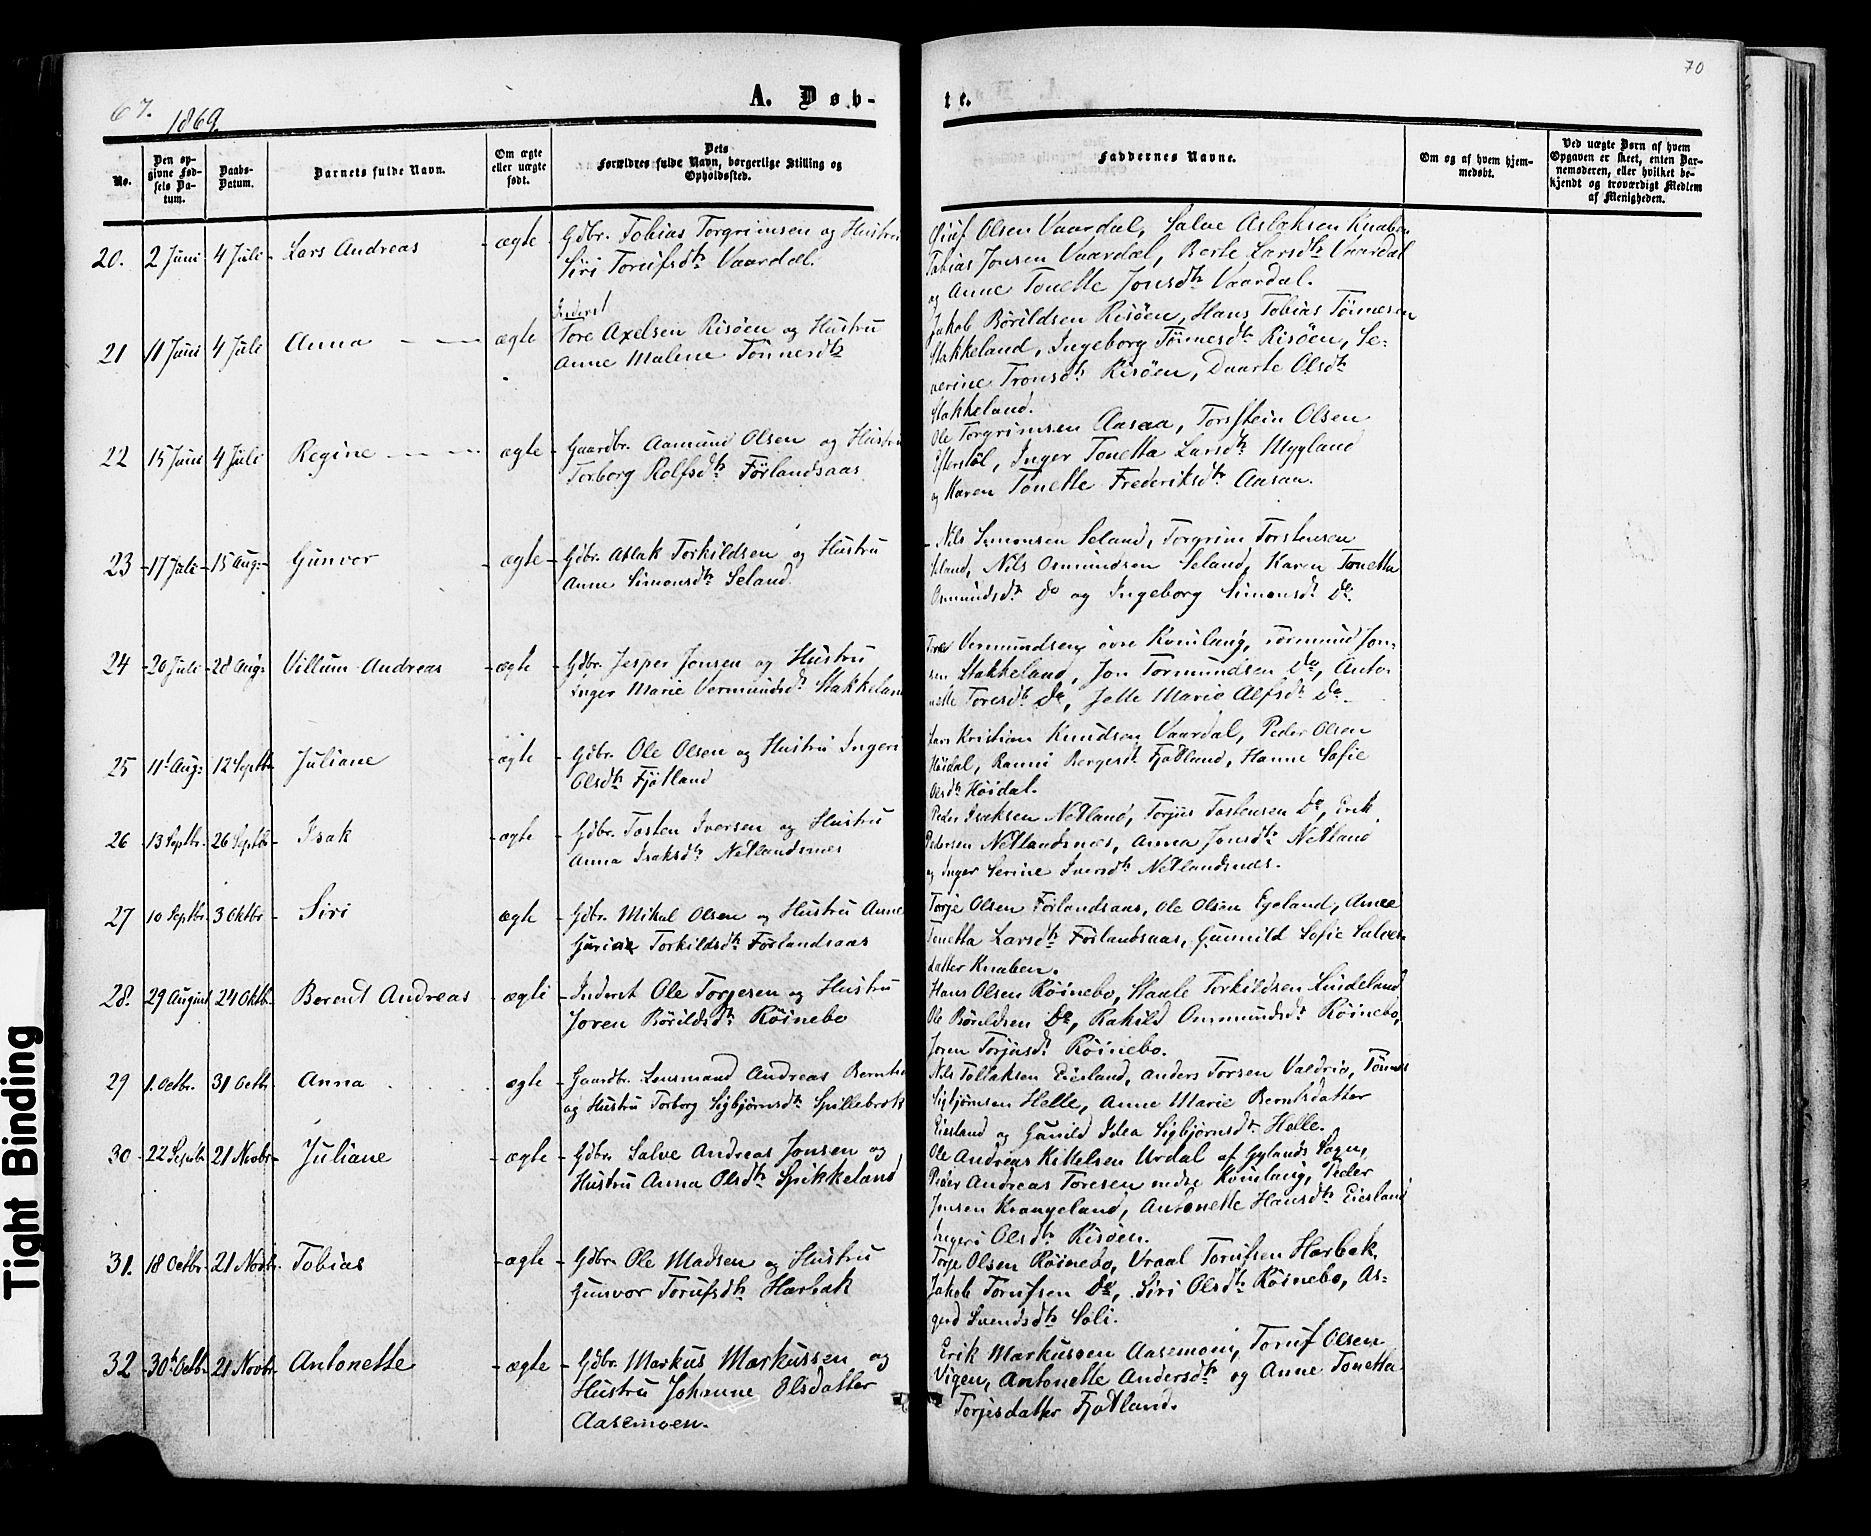 67.
1869.
A. Døb-
te.
70
No.
Den opgivne Fødsels Datum.
Daabs-Datum.
Barnets fulde Navn.
Om ægte eller uægte født.
Dets Forældres fulde Navn, borgerlige Stilling og Opholdssted.
Faddernes Navne.
Om og af hvem hjemmedøbt.
Ved uægte Børn af hvem Opgaven er skeet, enten Barnemoderen, eller hvilket bekjendt og troværdigt Medlem af Menigheden.
20. 2 Juni 4 Juli Lars Andreas ægte Gdbr. Tobias Torgrimsen og Hustru
Siri Torufsdtr Vaardal.
Oluf Olsen Vaardal, Salve Aslaksen Knaben
Tobias Jonsen Vaardal, Berte Larsdtr Vaardal
og Anne Tonette Jonsdtr Vaardal.
21 11 Juni 4 Juli Anna ægte Inderst
Tore Axelsen Risöen og Hustru
Anne Malene Tönnesdtr
Jakob Börildsen Risöen, Hans Tobias Tönnesen
Stakkeland, Ingeborg Tönnesdtr Risöen, Se-
verine Tronsdtr Risöen, Daarte Olsdtr
Stakkeland.
22 15 Juni 4 Juli Regine ægte Gaardbr. Aamund Olsen og Hustru
Torborg Rolfsdtr Förlandsaas
Ole Torgrimsen Aasaa, Torstein Olsen
Efterstöl, Inger Tonetta Larsdtr Mygland
og Karen Tonette Frederiksdtr Aasaa.
23 17 Juli 15 Aug: Gunvor ægte Gdbr. Aslak Torkildsen og Hustru
Anne Simonsdtr Seland.
Nils Simonsen Seland, Torgrim Torstensen
Seland, Nils Osmundsen Seland, Karen Tonetta
Osmundsdtr Do og Ingeborg Simonsdt Do.
24 20 Juli 28 Aug: Villum Andreas ægte Gdbr. Jesper Jonsen og Hustru
Inger Marie Vermundsdt Stakkeland
Vermundsen övre Kvinlaug, Tormund Jon-
sen Stakkeland, Jon Tormundsen Do, Anto-
nette Toresdtr Do, Jelle Maria Alfsdt Do
25 11 Aug: 12 Septbr Juliane ægte Gdbr. Ole Olsen og Hustru Ingeri
Olsdtr Fjotland
Lars Kristian Knudsen Vaardal, Peder Olsen
Höidal, Ranni Bergesdt Fjotland, Hanne Sofie
Olsdtr Höidal.
26 13 Septbr. 26 Septbr Isak ægte Gdbr. Tosten Iversen og Hustru
Anna Isaksdtr Netlandsnes
Peder Isaksen Netland, Torjus Tostensen Do, Erik
Pedersen Netlandsnes, Anna Jonsdtr Netland
og Inger Serine Iversdtr Netlandsnes.
27 10 Septbr 3 Oktbr Siri ægte Gdbr. Mikal Olsen og Hustru Anne
Gurine Torkildsdtr Förlandsaas
Torje Olsen Förlandsaas, Ole Olsen Egeland, Anne
Tonetta Larsdtr Förlandsaas, Gunnild Sofie Salves-
datter Knaben.
28. 29 August 24 Oktbr. Berent Andreas ægte Inderst Ole Torjesen og Hustru
Joren Börildsdtr Röinebo
Hans Olsen Röinebo, Staale Torkildsen Lindeland
Ole Börildsen Do, Rakild Ommundsdt Röinebo,
Joren Torjusdt Röinebo.
29 1. Octbr. 31 Octbr. Anna ægte Gaardbr. Lensmand Andreas Berntsen
og Hustru Torborg Sigbjörnsdtr Spillebrok
Nils Tollaksen Eiesland, Anders Torsen Valdrio, Tönnes
Sigbjörnsen Helle, Anne Marie Berntsdatter
Eiesland og Gunild Idea Sigbjörnsdt Helle.
30 22 Septbr 21 Novbr Juliane ægte Gdbr. Salve Andreas Jonsen og
Hustru Anna Olsdtr Spikkeland
Ole Andreas Kittelsen Urdal af Gylands Sogn,
Peder Andreas Toresen nedre Kvinlaug, Peder
Jonsen Krangeland, Antonette Hansdtr Eiesland
Ingeri Olsdtr Risöen.
31. 18 Octbr. 21 Novbr. Tobias ægte Gdbr. Ole Madsen og Hustru
Gunvor Torufsdtr Hærbak
Torje Olsen Röinebo, Vraal Torufsen Hærbak,
Jakob Torufsen Do, Siri Olsdtr Röinebo, As-
gerd Svendsdtr Soli.
32 30te Octbr 21 Novbr Antonette ægte Gdbr. Markus Markussen og
Hustru Johanne Olsdatter
Aasemoen.
Erik Markussen Aasemoen, Toruf Olsen
Vigen, Antonette Andersdtr og Anne Tonetta
Torjesdatter Fjotland.
Tight Binding